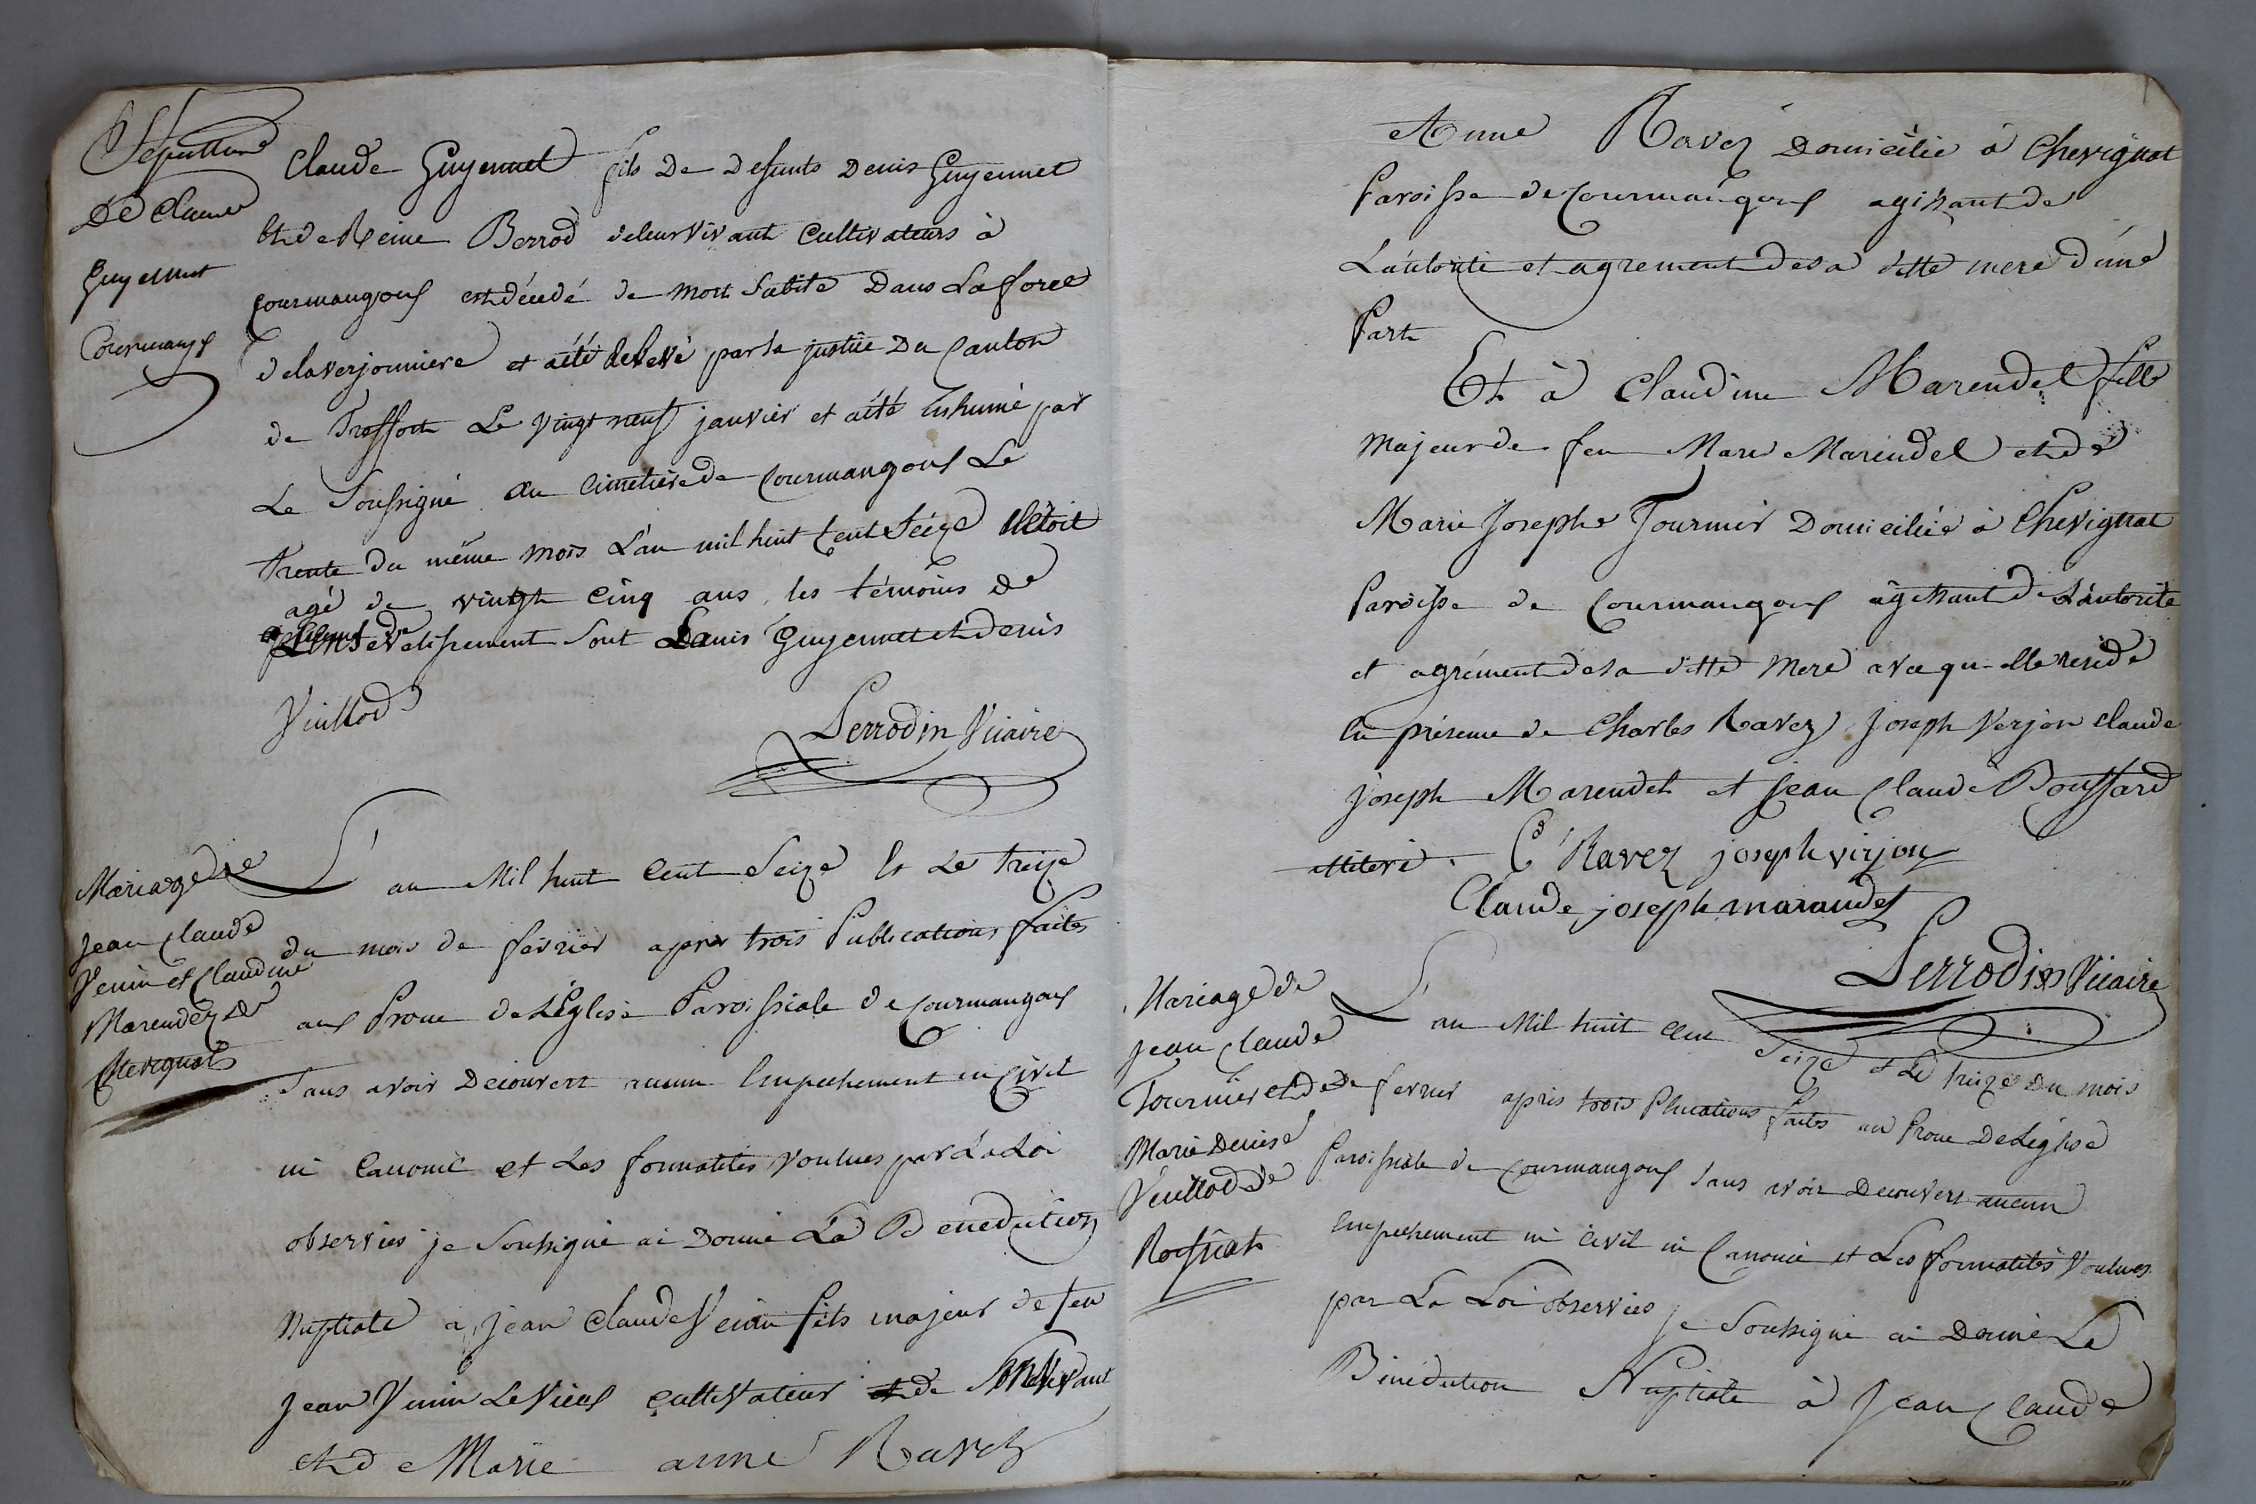 Sepulture
De Claude
Guyennet
Courmangoux
Claude Guyennet fils De Defunts Denis Guyennet
Et de Reine Berrod de leur vivant Cultivateurs à
Courmangoux est décédé de mort subite Dans La foret
de laverjonniere et aété relevé par la justice Du Canton
de Treffort Le vingt neuf janvier et aété Inhumé par
Le Soussigné au Cimetiere de Courmangoux Le
Trente du même mois L'an mil huit Cent Seize il étoit
agé de vingt Cinq ans les témoins de
L'ensevelissement sont Denis Guyennet et denis
Vuillod
Perrodin Vicaire
Mariage De
Jean Claude
Venin et Claudine
Marendet De
Chevignat
L'an Mil huit Cent Seize et Le treize
du mois de février après trois Publications faites
aux Prone de L'Eglise Paroissiale de Courmangoux
Sans avoir Decouvert aucun Empechement ni Civil
ni Canonic et Les formalités voulues par La Loi
observées je Soussigné ai Donné La Benediction
Nuptiale a Jean Claude Venin fils majeur de feu
Jean Venin Le Vieux Cultivateur de Son Vivant
et de Marie anne Ravez
Anne Ravez Domiciliée à Chevignat
Paroisse de Courmangoux agissant de
L'autorité et agrement de sa ditte mere d'une
Part
Et à Claudine Marendet fille
Majeur de feu Marie Marendel et de
Marie Josephe Fournier Domiciliée à Chevignat
Paroisse de Courmangoux agissant de L'autorité
et agrément de sa ditte Mere avec qui elle reside
En présence de Charles Ravez Joseph Verjon Claude
Joseph Marendet et Jean Claude Bouffard
illiteré. C Ravez joseph virjon
Claude joseph marandet
Perrodin Vicaire
Mariage de
Jean Claude
Fournier et de
Marie Denise
Vuillod De
Rosfnat
L'an Mil huit Cent Seize et Le treize Du mois
De fevrier après trois Plucations faites au Prone De L'église
Paroissiale de Courmangoux Sans avoir Decouvert aucun
Empechement ni Civil ni Canonic et Les formalités Voulues
par La Loi observées je Soussigné ai Donné La
Bénédiction Nuptiale à Jean Claude